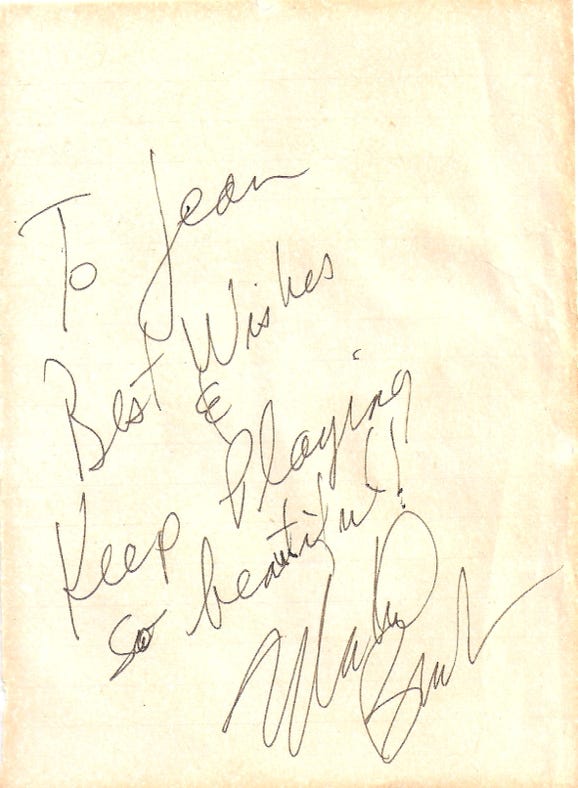 To Jean
Best Wishes
&
Keep Playing
so beautiful!